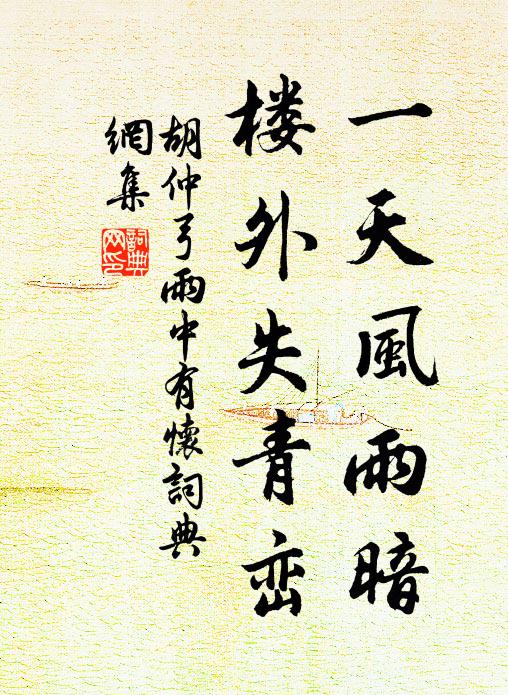 一天風雨暗
楼外失青峦
胡仲弓雨中有懷詞典
網集
詞典
网印